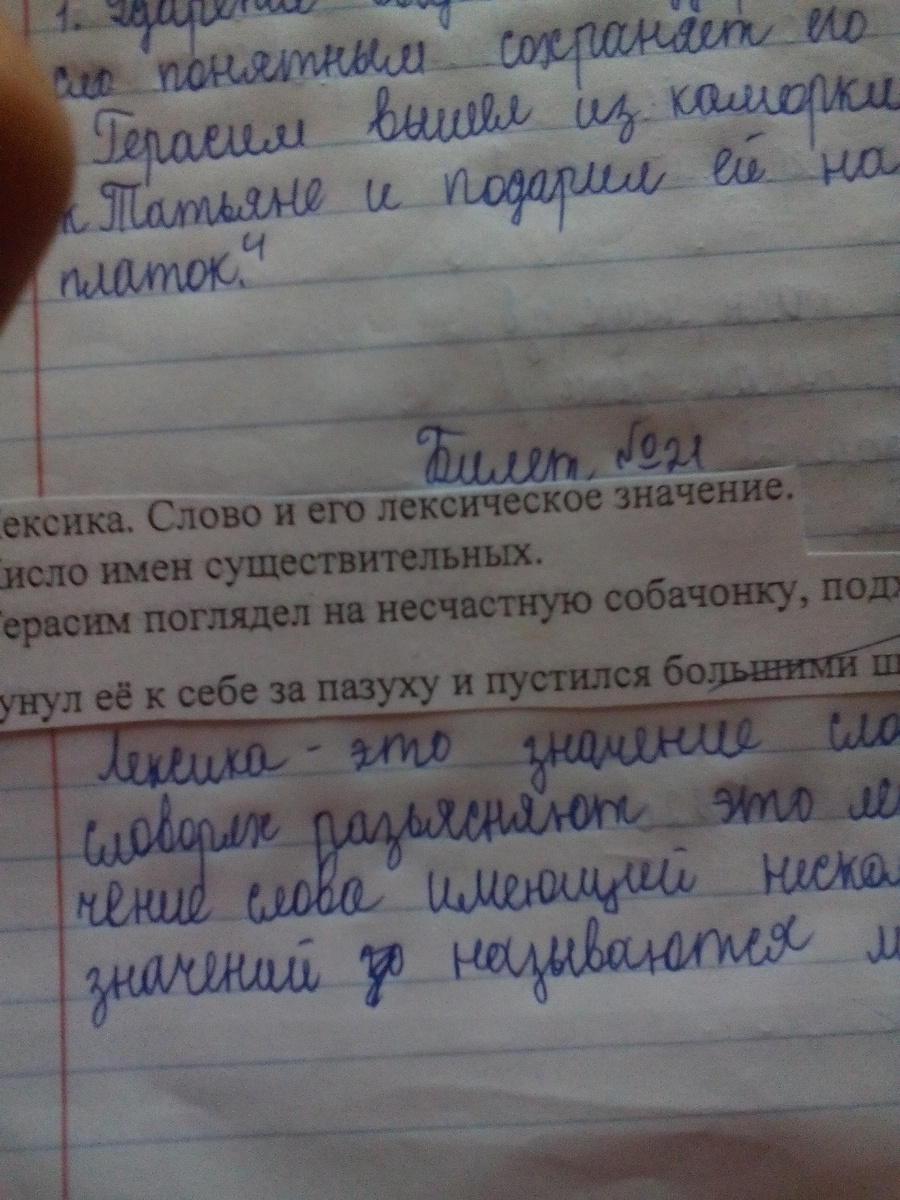 1. Ударение
понятным сохраняет его
Герасим вышел из каморки
к Татьяне и подарил ей на
платок.4
Билет №21
ексика. Слово и его лексическое значение.
исло имен существительных.
ерасим поглядел на несчастную собачонку, подх
унул её к себе за пазуху и пустился большими ш
Лексика - это значение сло
словорях разьясняют это ле
чение слова имеющий нескол
значений называются м